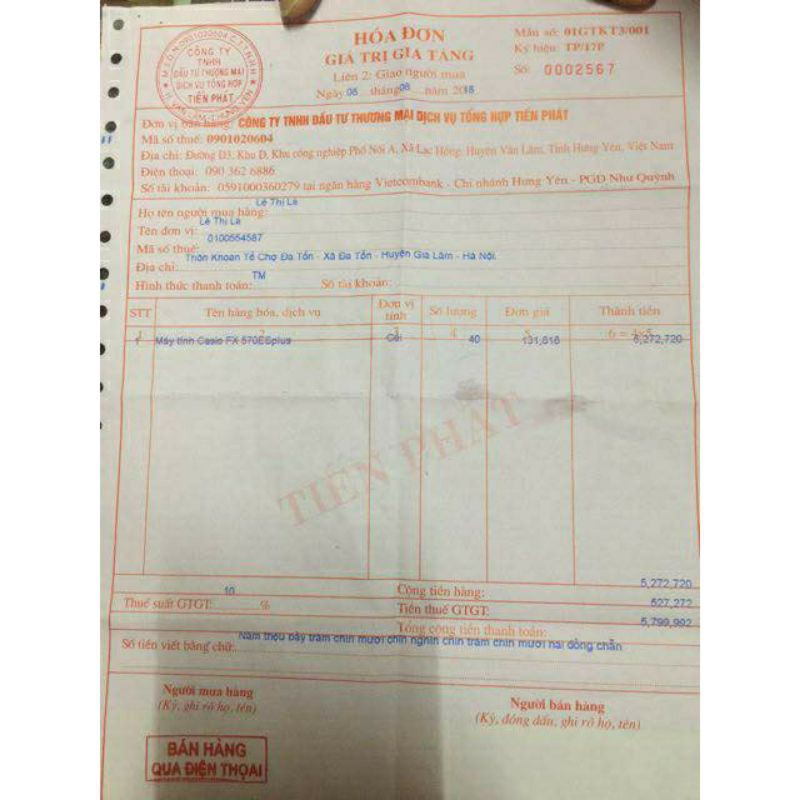 HÓA ĐƠN
GIÁ TRỊ GIA TĂNG
Liên 2: Giao người mua
Ngày 06 tháng 06 năm 2018
Mẫu số: 01GTKT3/001
Ký hiệu: TP/17P
Số: 0002567
M.S.D.N:0901020604
CÔNG TY
TNHH
ĐẦU TƯ THƯƠNG MẠI
DỊCH VỤ TỔNG HỢP
TIẾN PHÁT
Đơn vị bán hàng: CÔNG TY TNHH ĐẦU TƯ THƯƠNG MẠI DỊCH VỤ TỔNG HỢP TIẾN PHÁT
Mã số thuế: 0901020604
Địa chỉ: Đường D3, Khu D, Khu công nghiệp Phố Nối A, Xã Lạc Hồng, Huyện Văn Lâm, Tỉnh Hưng Yên, Việt Nam
Điện thoại: 090 362 6886
Số tài khoản: 0591000360279 tại ngân hàng Vietcombank - Chi nhánh Hưng Yên - PGD Như Quỳnh
Họ tên người mua hàng: Lê Thị Lê
Tên đơn vị: Lê Thị Lê
Mã số thuế: 0100554587
Địa chỉ: Thôn Khoan Tế Chợ Đa Tốn - Xã Đa Tốn - Huyện Gia Lâm - Hà Nội.
Hình thức thanh toán: TM Số tài khoản:
STT Tên hàng hóa, dịch vụ Đơn vị tính Số lượng Đơn giá Thành tiền
1 2 3 4 5 6 = 4x5
1 Máy tính Casio FX 570ESplus Cái 40 131,818 5,272,720
TIẾN PHÁT
Cộng tiền hàng: 5,272,720
Thuế suất GTGT: 10 % Tiền thuế GTGT: 527,272
Tổng cộng tiền thanh toán: 5,799,992
Số tiền viết bằng chữ: Năm triệu bảy trăm chín mươi chín nghìn chín trăm chín mươi hai đồng chẵn
Người mua hàng
(Ký, ghi rõ họ, tên)
Người bán hàng
(Ký, đóng dấu, ghi rõ họ, tên)
BÁN HÀNG
QUA ĐIỆN THOẠI